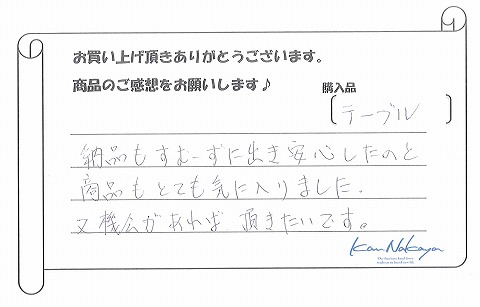 お買い上げ頂きありがとうございます。
商品のご感想をお願いします♪
購入品
テーブル
納品もすむーずに出き安心したのと
商品もとても気に入りました.
又機会があれば 頂きたいです。
Kan Nakaya